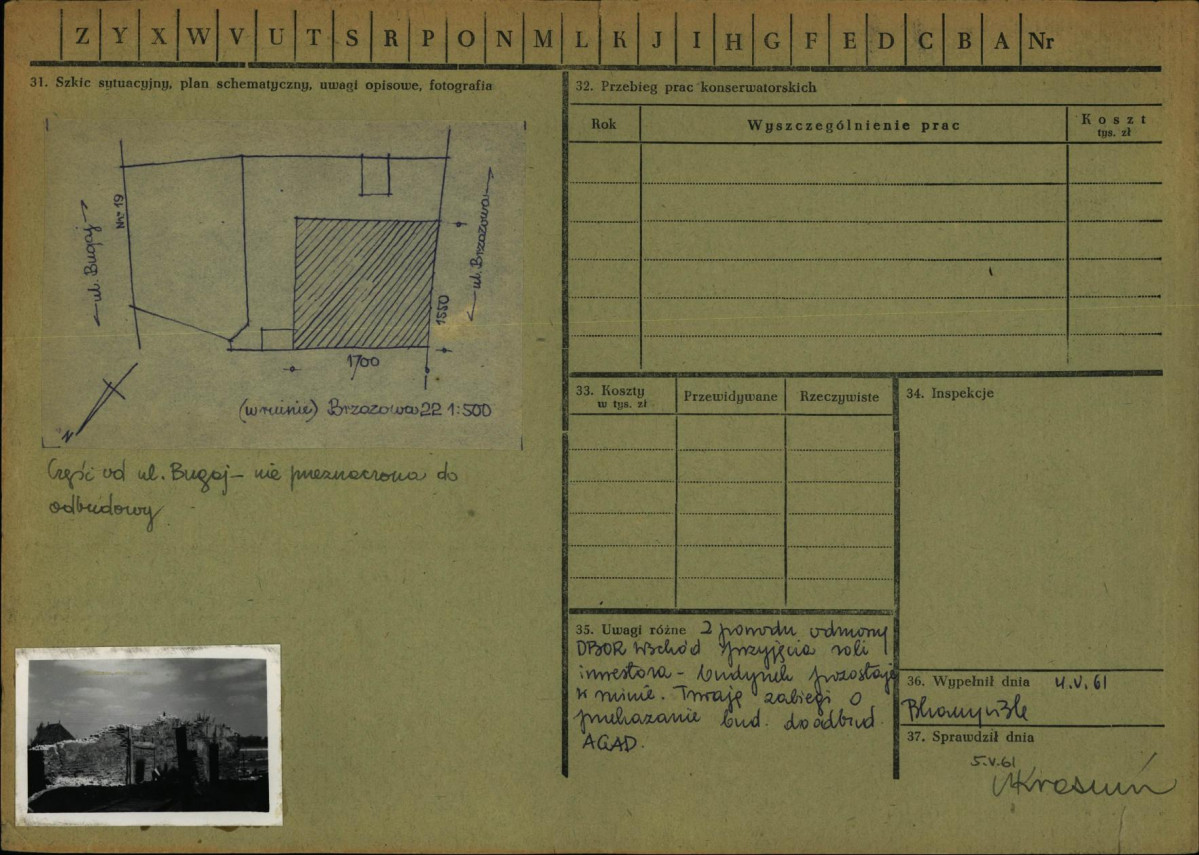 Z Y X W V U T S R P O N M L K J I H G F E D C B A Nr
31. Szkic sytuacyjny, plan schematyczny, uwagi opisowe, fotografia
ul. Bugaj
Nr 19
ul. Brzozowa
1550
1700
N
(w ruinie) Brzozowa 22 1:500
Część od ul. Bugaj – nie przeznaczona do
odbudowy
32. Przebieg prac konserwatorskich
Rok
Wyszczególnienie prac
Koszt
tys. zł
33. Koszty
w tys. zł
Przewidywane
Rzeczywiste
34. Inspekcje
35. Uwagi różne Z powodu odmowy
DBOR Wschód przyjęcia roli
inwestora – budynek pozostaje
w ruinie. Trwają zabiegi o
przekazanie bud. do odbud.
AGAD.
36. Wypełnił dnia 4.V.61
37. Sprawdził dnia
5.V.61